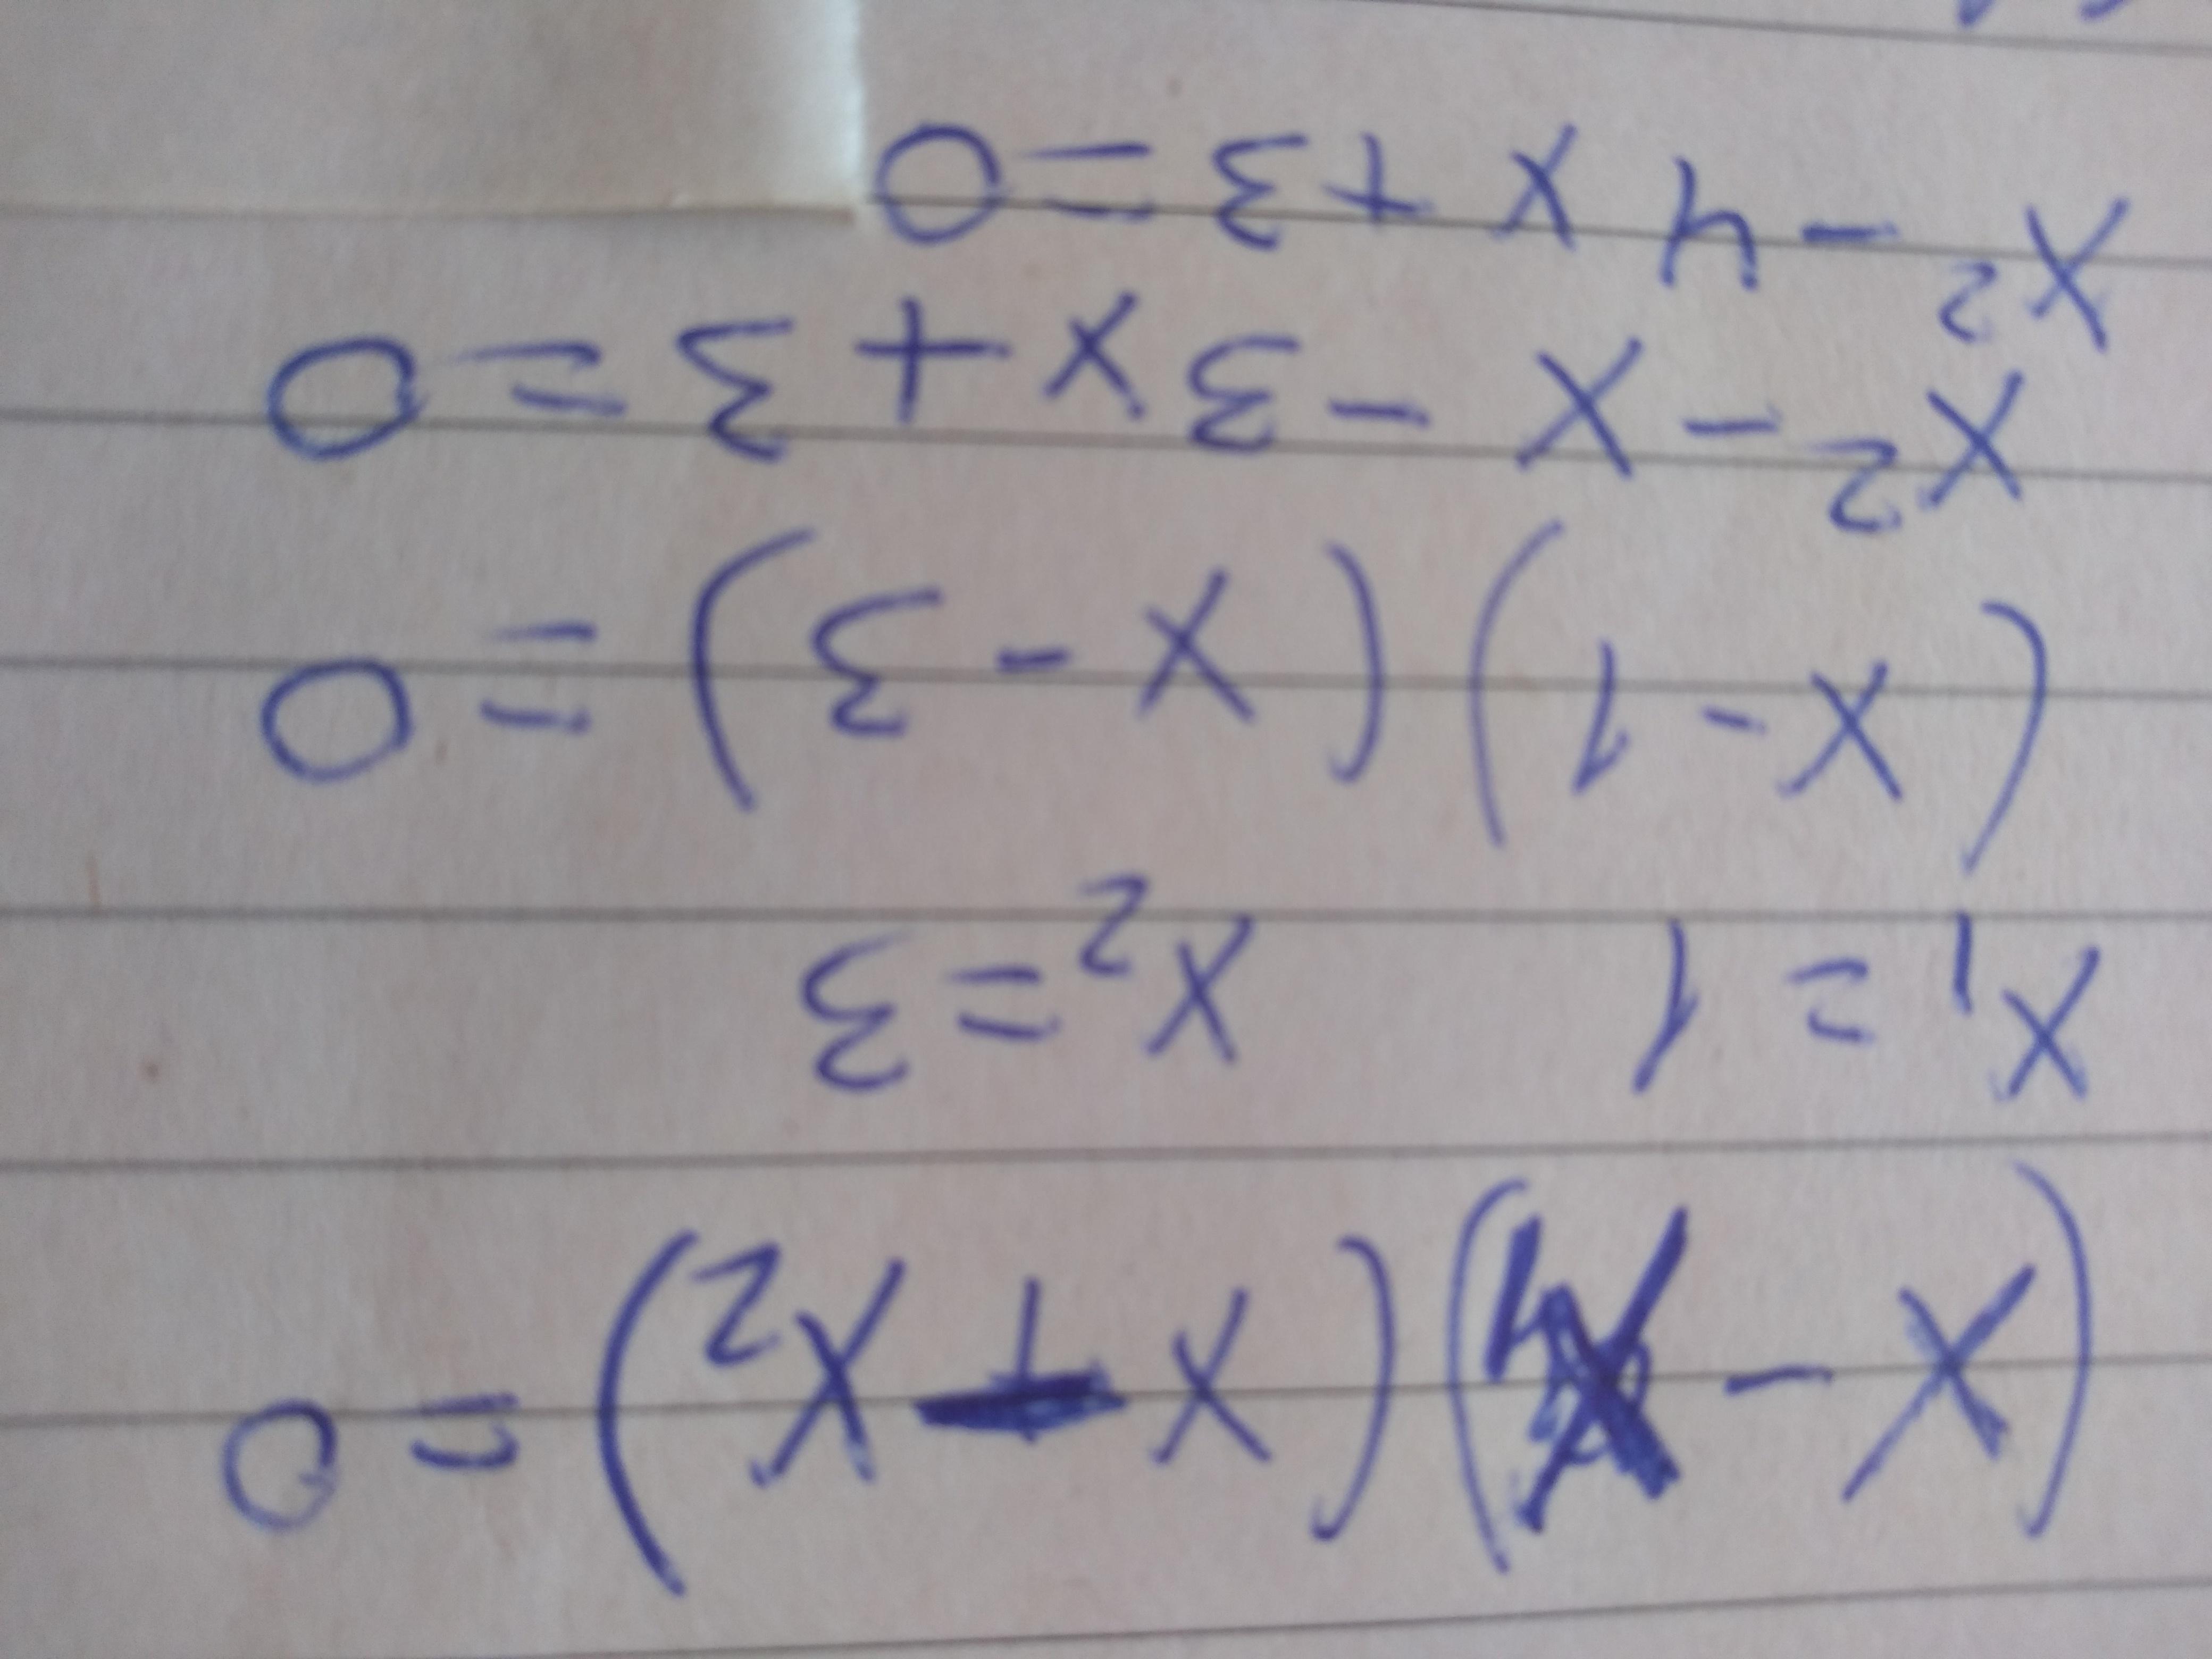 (x - x₁)(x - x₂) = 0
x₁ = 1 x₂ = 3
(x - 1)(x - 3) = 0
x² - x - 3x + 3 = 0
x² - 4x + 3 = 0